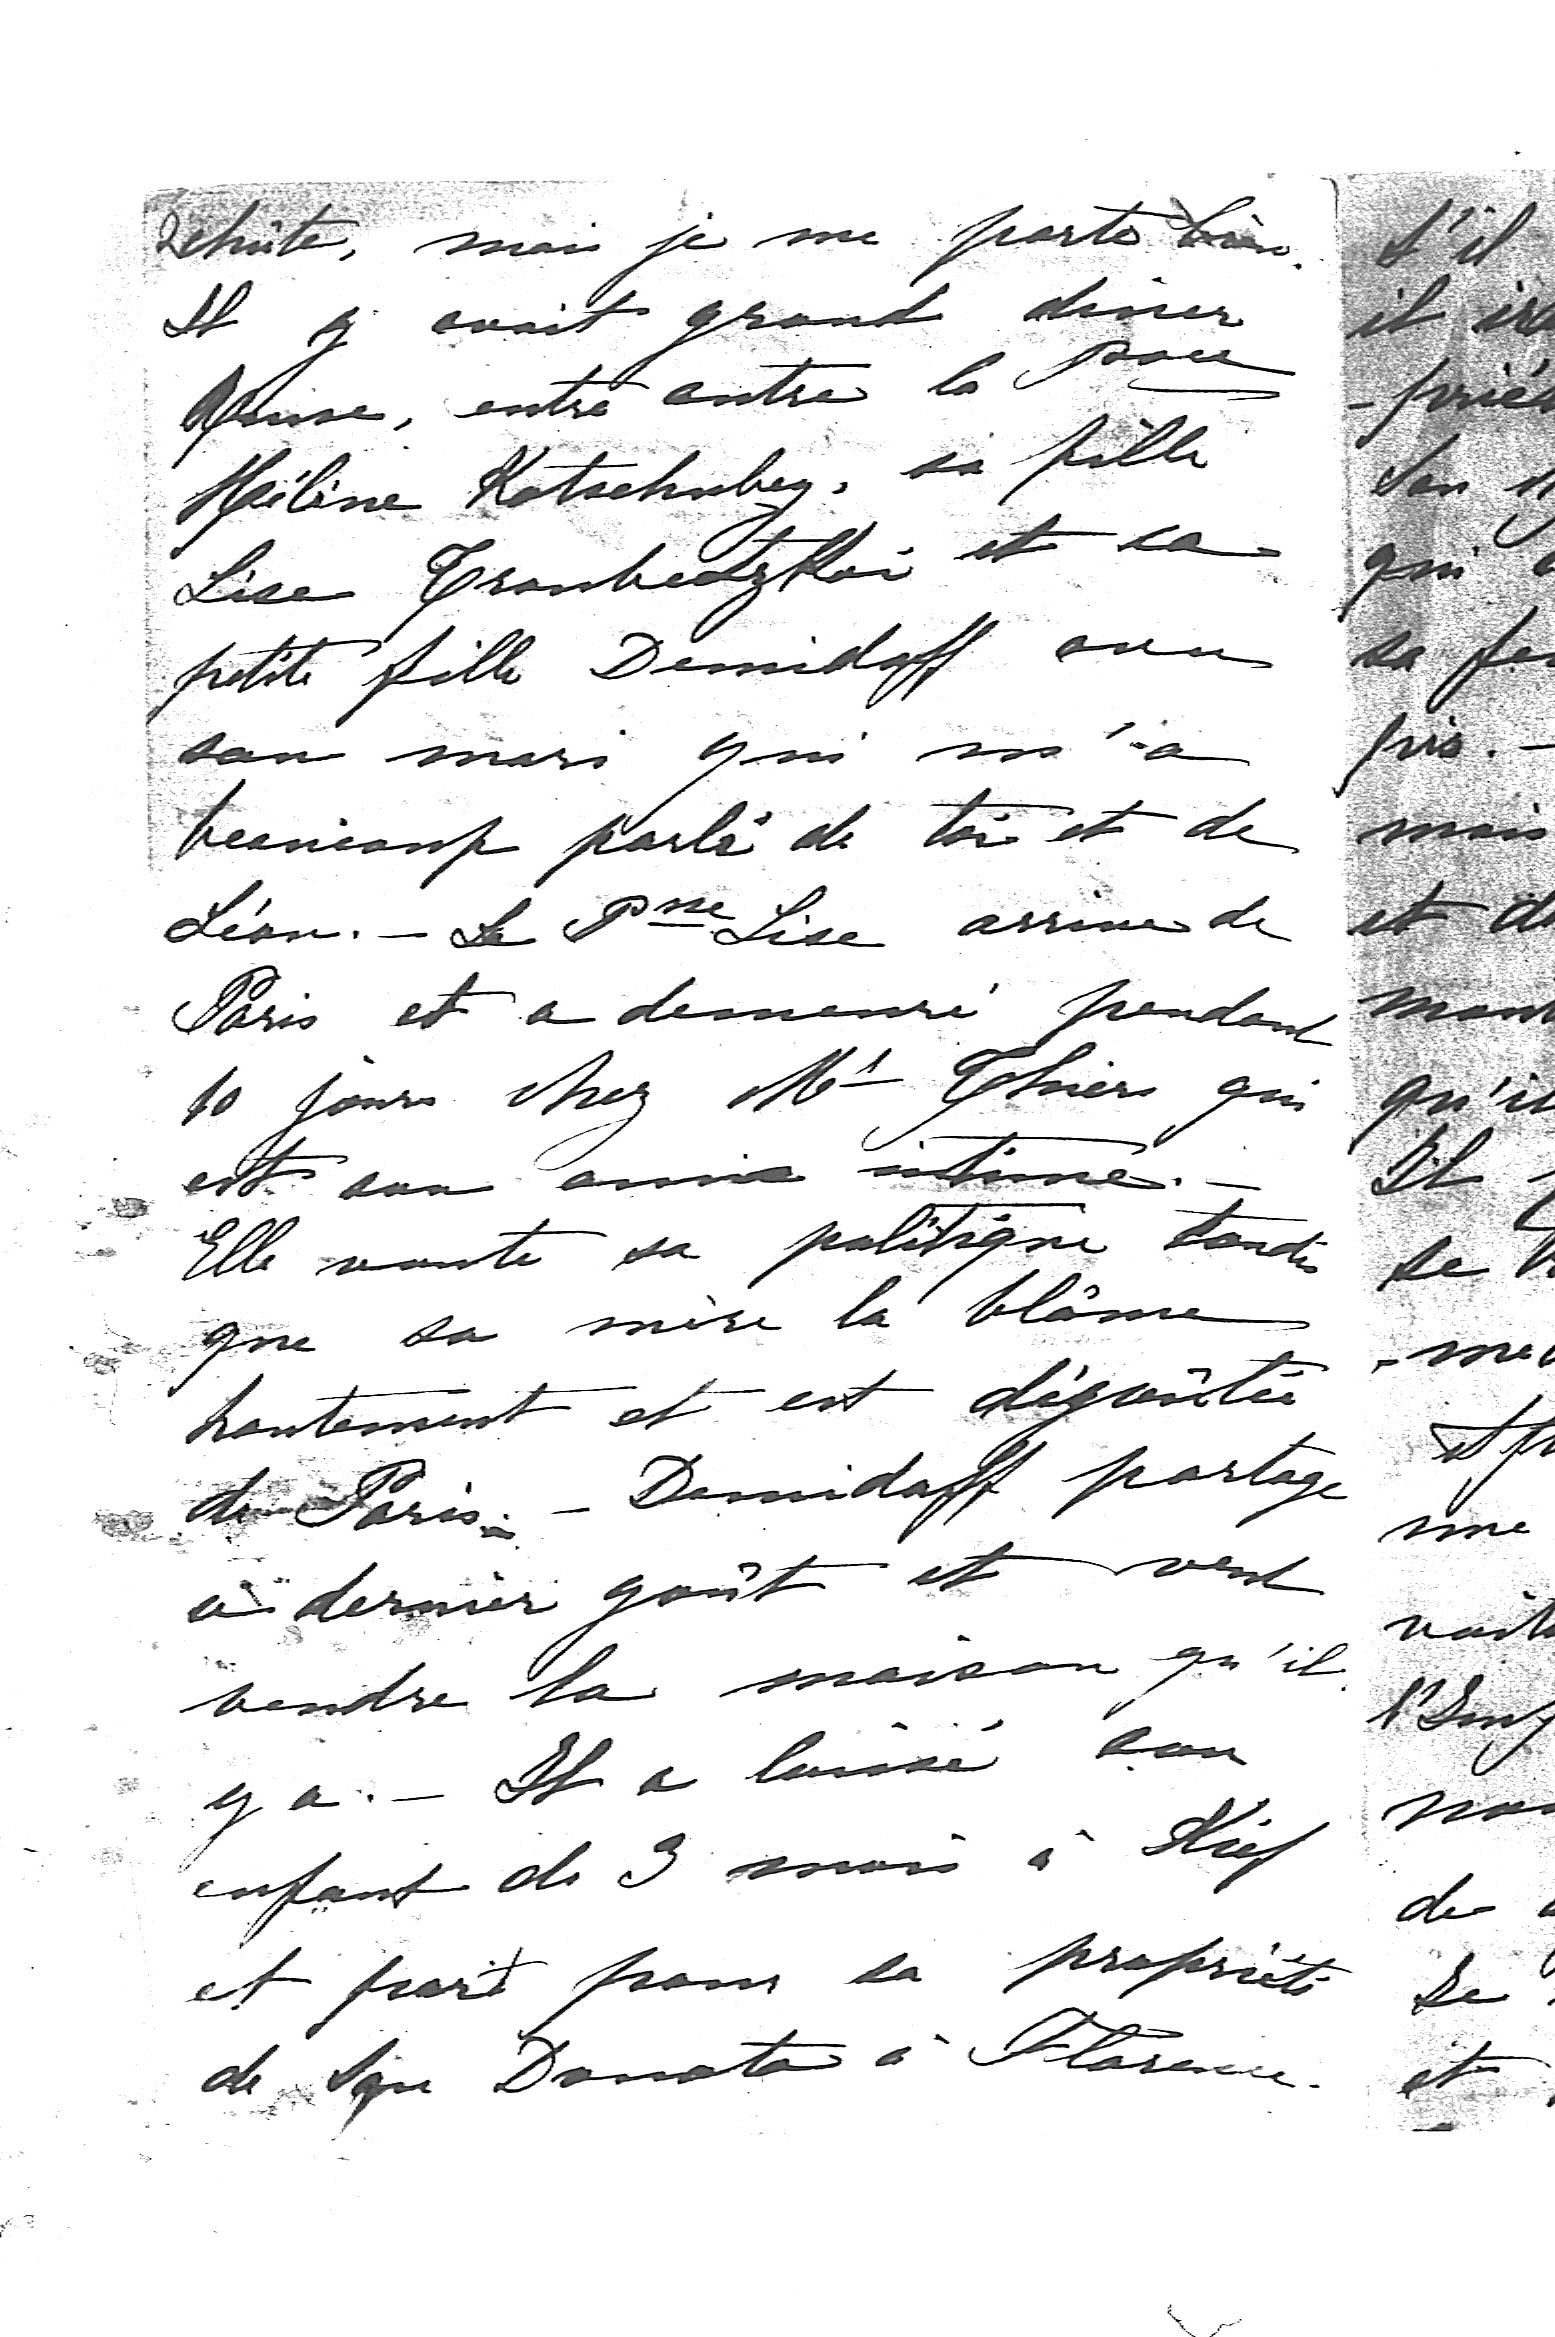 chûte, mais je me porte bien.
Il y avait grand dîner
Russe, entre autre la Pcesse
Hélène Kotschubey, sa fille
Lise Troubetzkoi et sa
petite fille Demidoff avec
son mari qui m'a
beaucoup parlé de toi et de
Léon. — La Psse Lise arrive de
Paris et a demeuré pendant
10 jours chez Mr Thiers qui
est son ami intime. —
Elle vante sa politique tandis
que sa mère la blâme
hautement et est dégoûtée
de Paris. — Demidoff partage
ce dernier goût et veut
vendre la maison qu'il
y a. — Il a laissé son
enfant de 3 mois à Kief
et part pour sa propriété
de Donato à Florence.
s'il
il
-prié
son
qui
sa
pris. —
mais
et
qu'il
Il
se
et
une
de
se
et